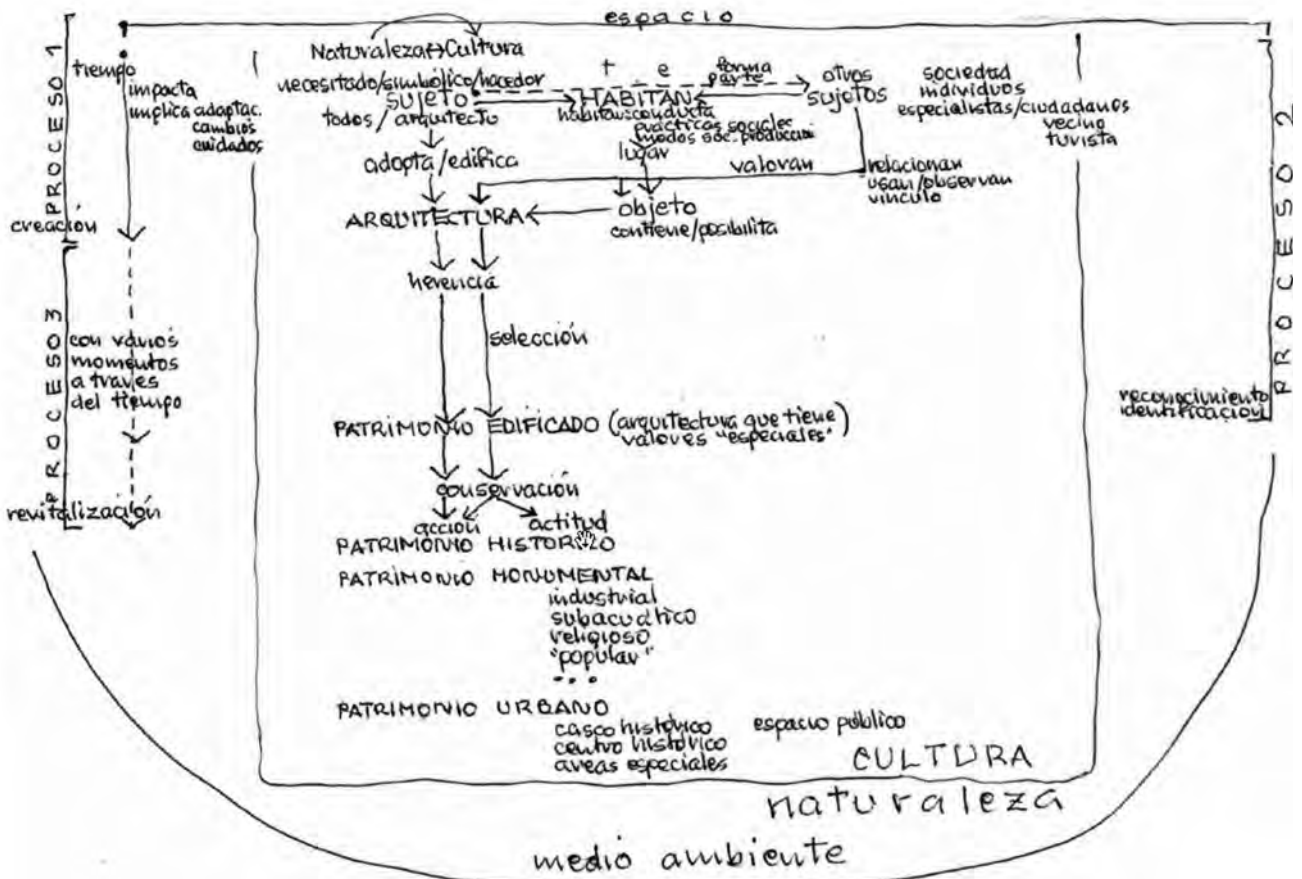 espacio
PROCESO 1
tiempo
impacta
implica adaptac.
cambios
cuidados
creación
PROCESO 3
con varios
momentos
a través
del tiempo
revitalización
Naturaleza↔Cultura
necesitado/simbólico/hacedor
sujeto
todos/arquitecto
adopta/edifica
t e
forma
parte
HABITAN
habitar=conducta
prácticas sociales
modos soc. producción
lugar
otros
sujetos
sociedad
individuos
especialistas/ciudadanos
vecino
turista
valoran
relacionan
usan/observan
vínculo
ARQUITECTURA
objeto
contiene/posibilita
herencia
selección
PATRIMONIO EDIFICADO (arquitectura que tiene
valores "especiales")
conservación
acción actitud
PATRIMONIO HISTÓRICO
PATRIMONIO MONUMENTAL
industrial
subacuático
religioso
"popular"
...
PATRIMONIO URBANO
casco histórico espacio público
centro histórico
áreas especiales
PROCESO 2
reconocimiento
identificación
CULTURA
naturaleza
medio ambiente